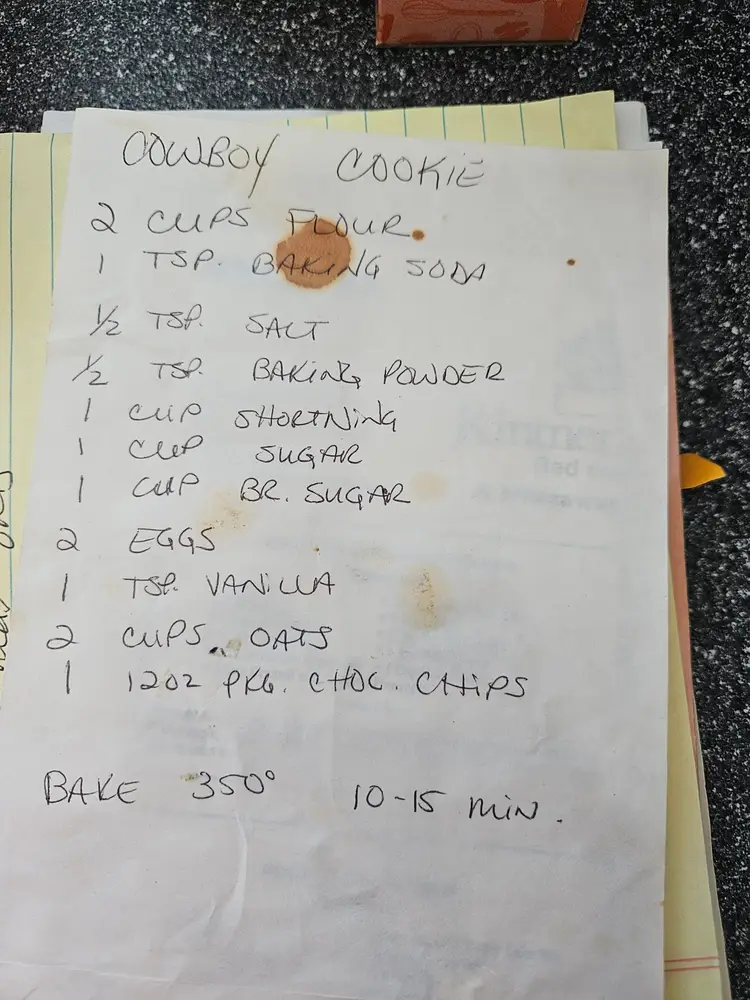 COWBOY COOKIE
2 CUPS FLOUR
1 TSP. BAKING SODA
1/2 TSP. SALT
1/2 TSP. BAKING POWDER
1 CUP SHORTNING
1 CUP SUGAR
1 CUP BR. SUGAR
2 EGGS
1 TSP. VANILLA
2 CUPS OATS
1 12OZ PKG. CHOC. CHIPS
BAKE 350° 10-15 MIN.